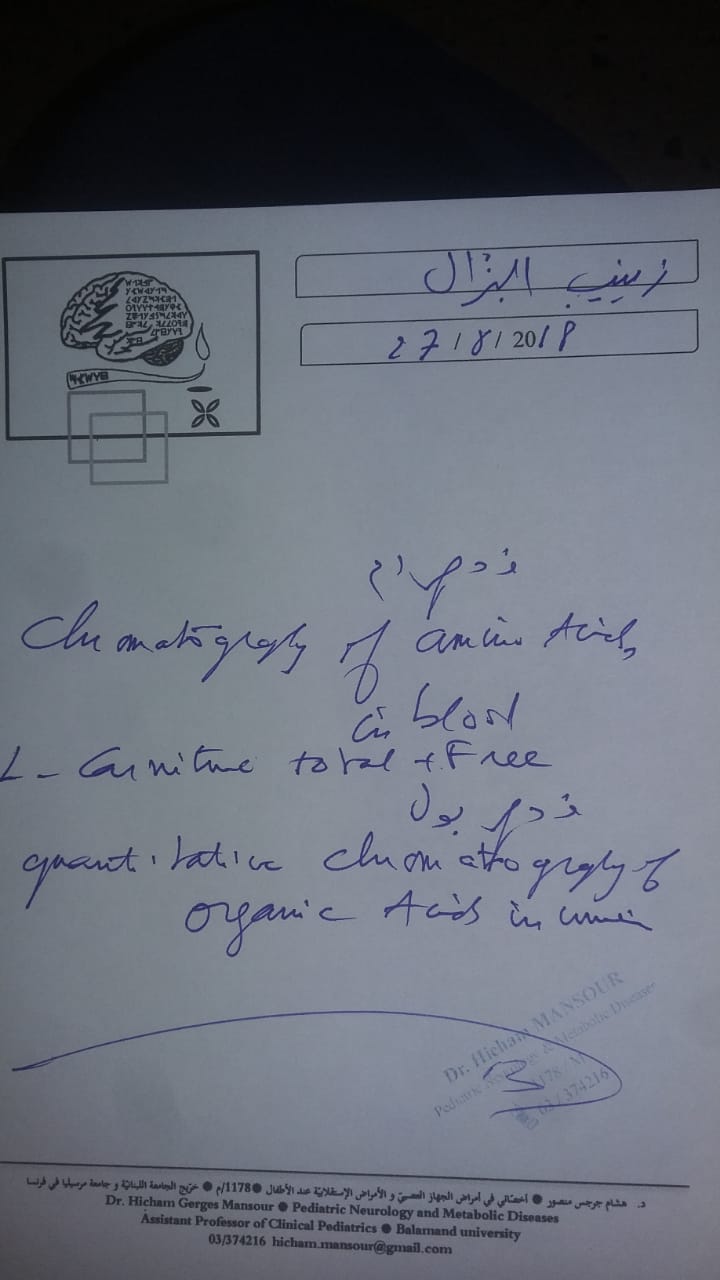 زينب البزال
27/8/2018
فحص دم
Chromatography of amino Acids
in blood
L-Carnitine total + Free
فحص بول
quantitative chromatography of
organic Acids in urine
Dr. Hicham MANSOUR
Pediatric Neurology & Metabolic Diseases
1178/M
03/374216
د. هشام جرجس منصور ● أخصّائي في أمراض الجهاز العصبيّ و الأمراض الإستقلابيّة عند الأطفال ● 1178/م ● خرّيج الجامعة اللبنانيّة و جامعة مرسيليا في فرنسا
Dr. Hicham Gerges Mansour ● Pediatric Neurology and Metabolic Diseases
Assistant Professor of Clinical Pediatrics ● Balamand university
03/374216 hicham.mansour@gmail.com